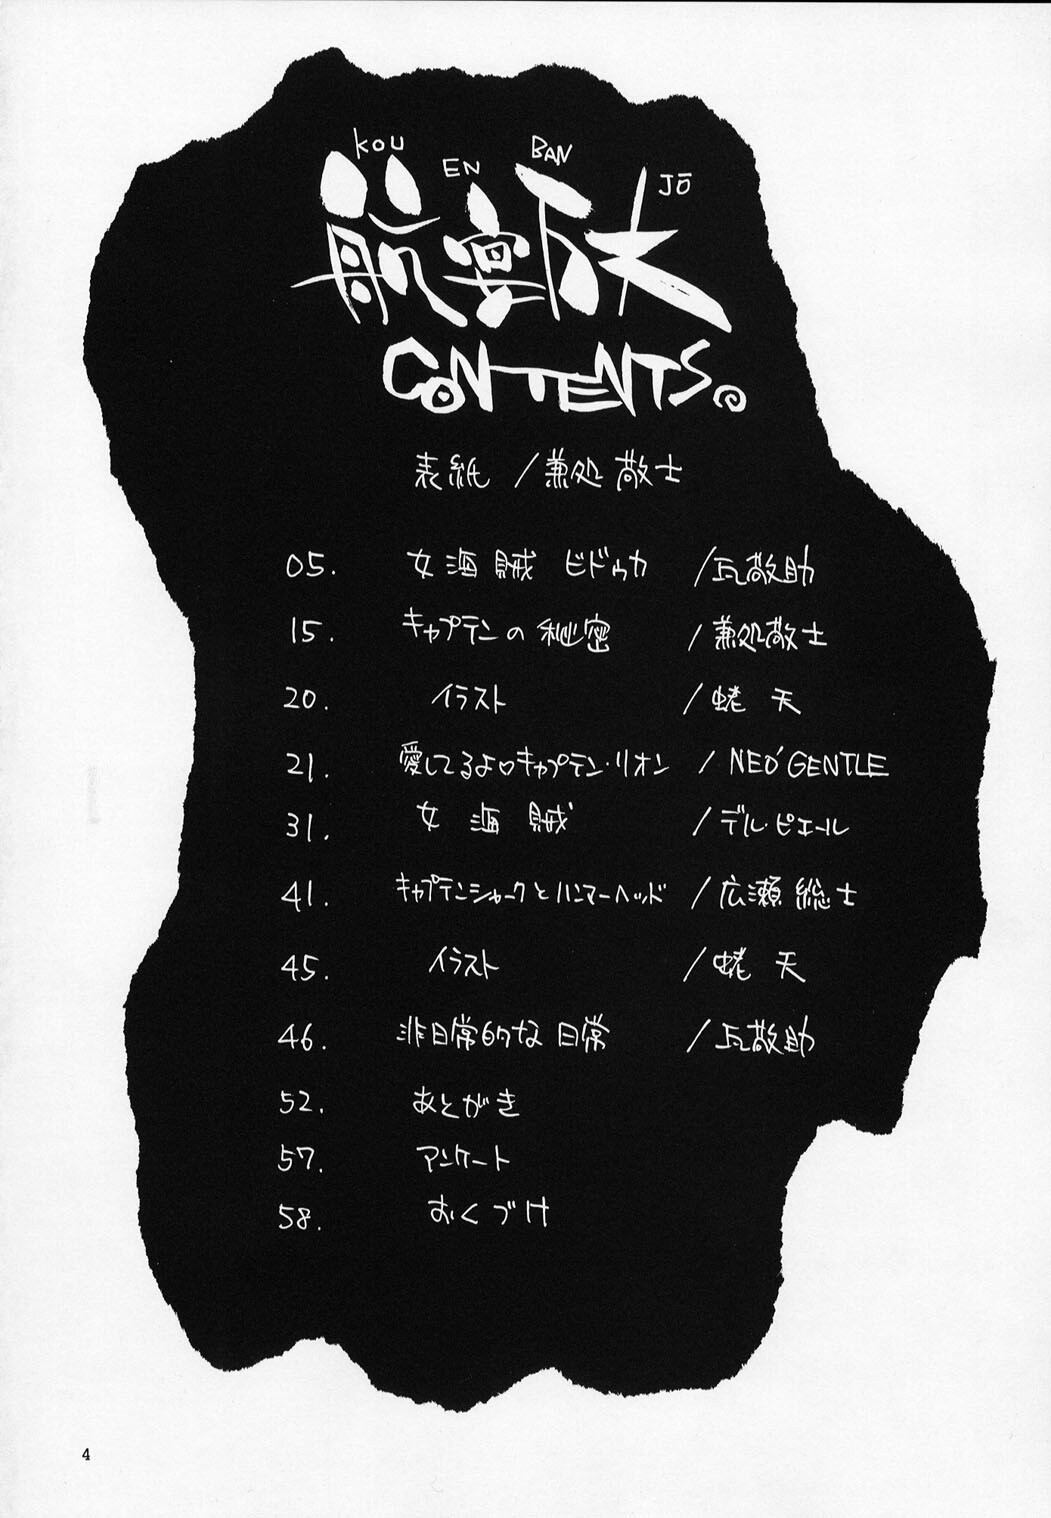 KOU EN BAN JŌ
CONTENTS。
表紙 /兼処敬士
05. 女海賊 ビドゥカ /瓦敬助
15. キャプテンの秘密 /兼処敬士
20. イラスト /蛯天
21. 愛してるよ♡キャプテン・リオン /NEO'GENTLE
31. 女海賊 /デル・ピエール
41. キャプテンシャークとハンマーヘッド /広瀬総士
45. イラスト /蛯天
46. 非日常的な日常 /瓦敬助
52. あとがき
57. アンケート
58. おくづけ
4